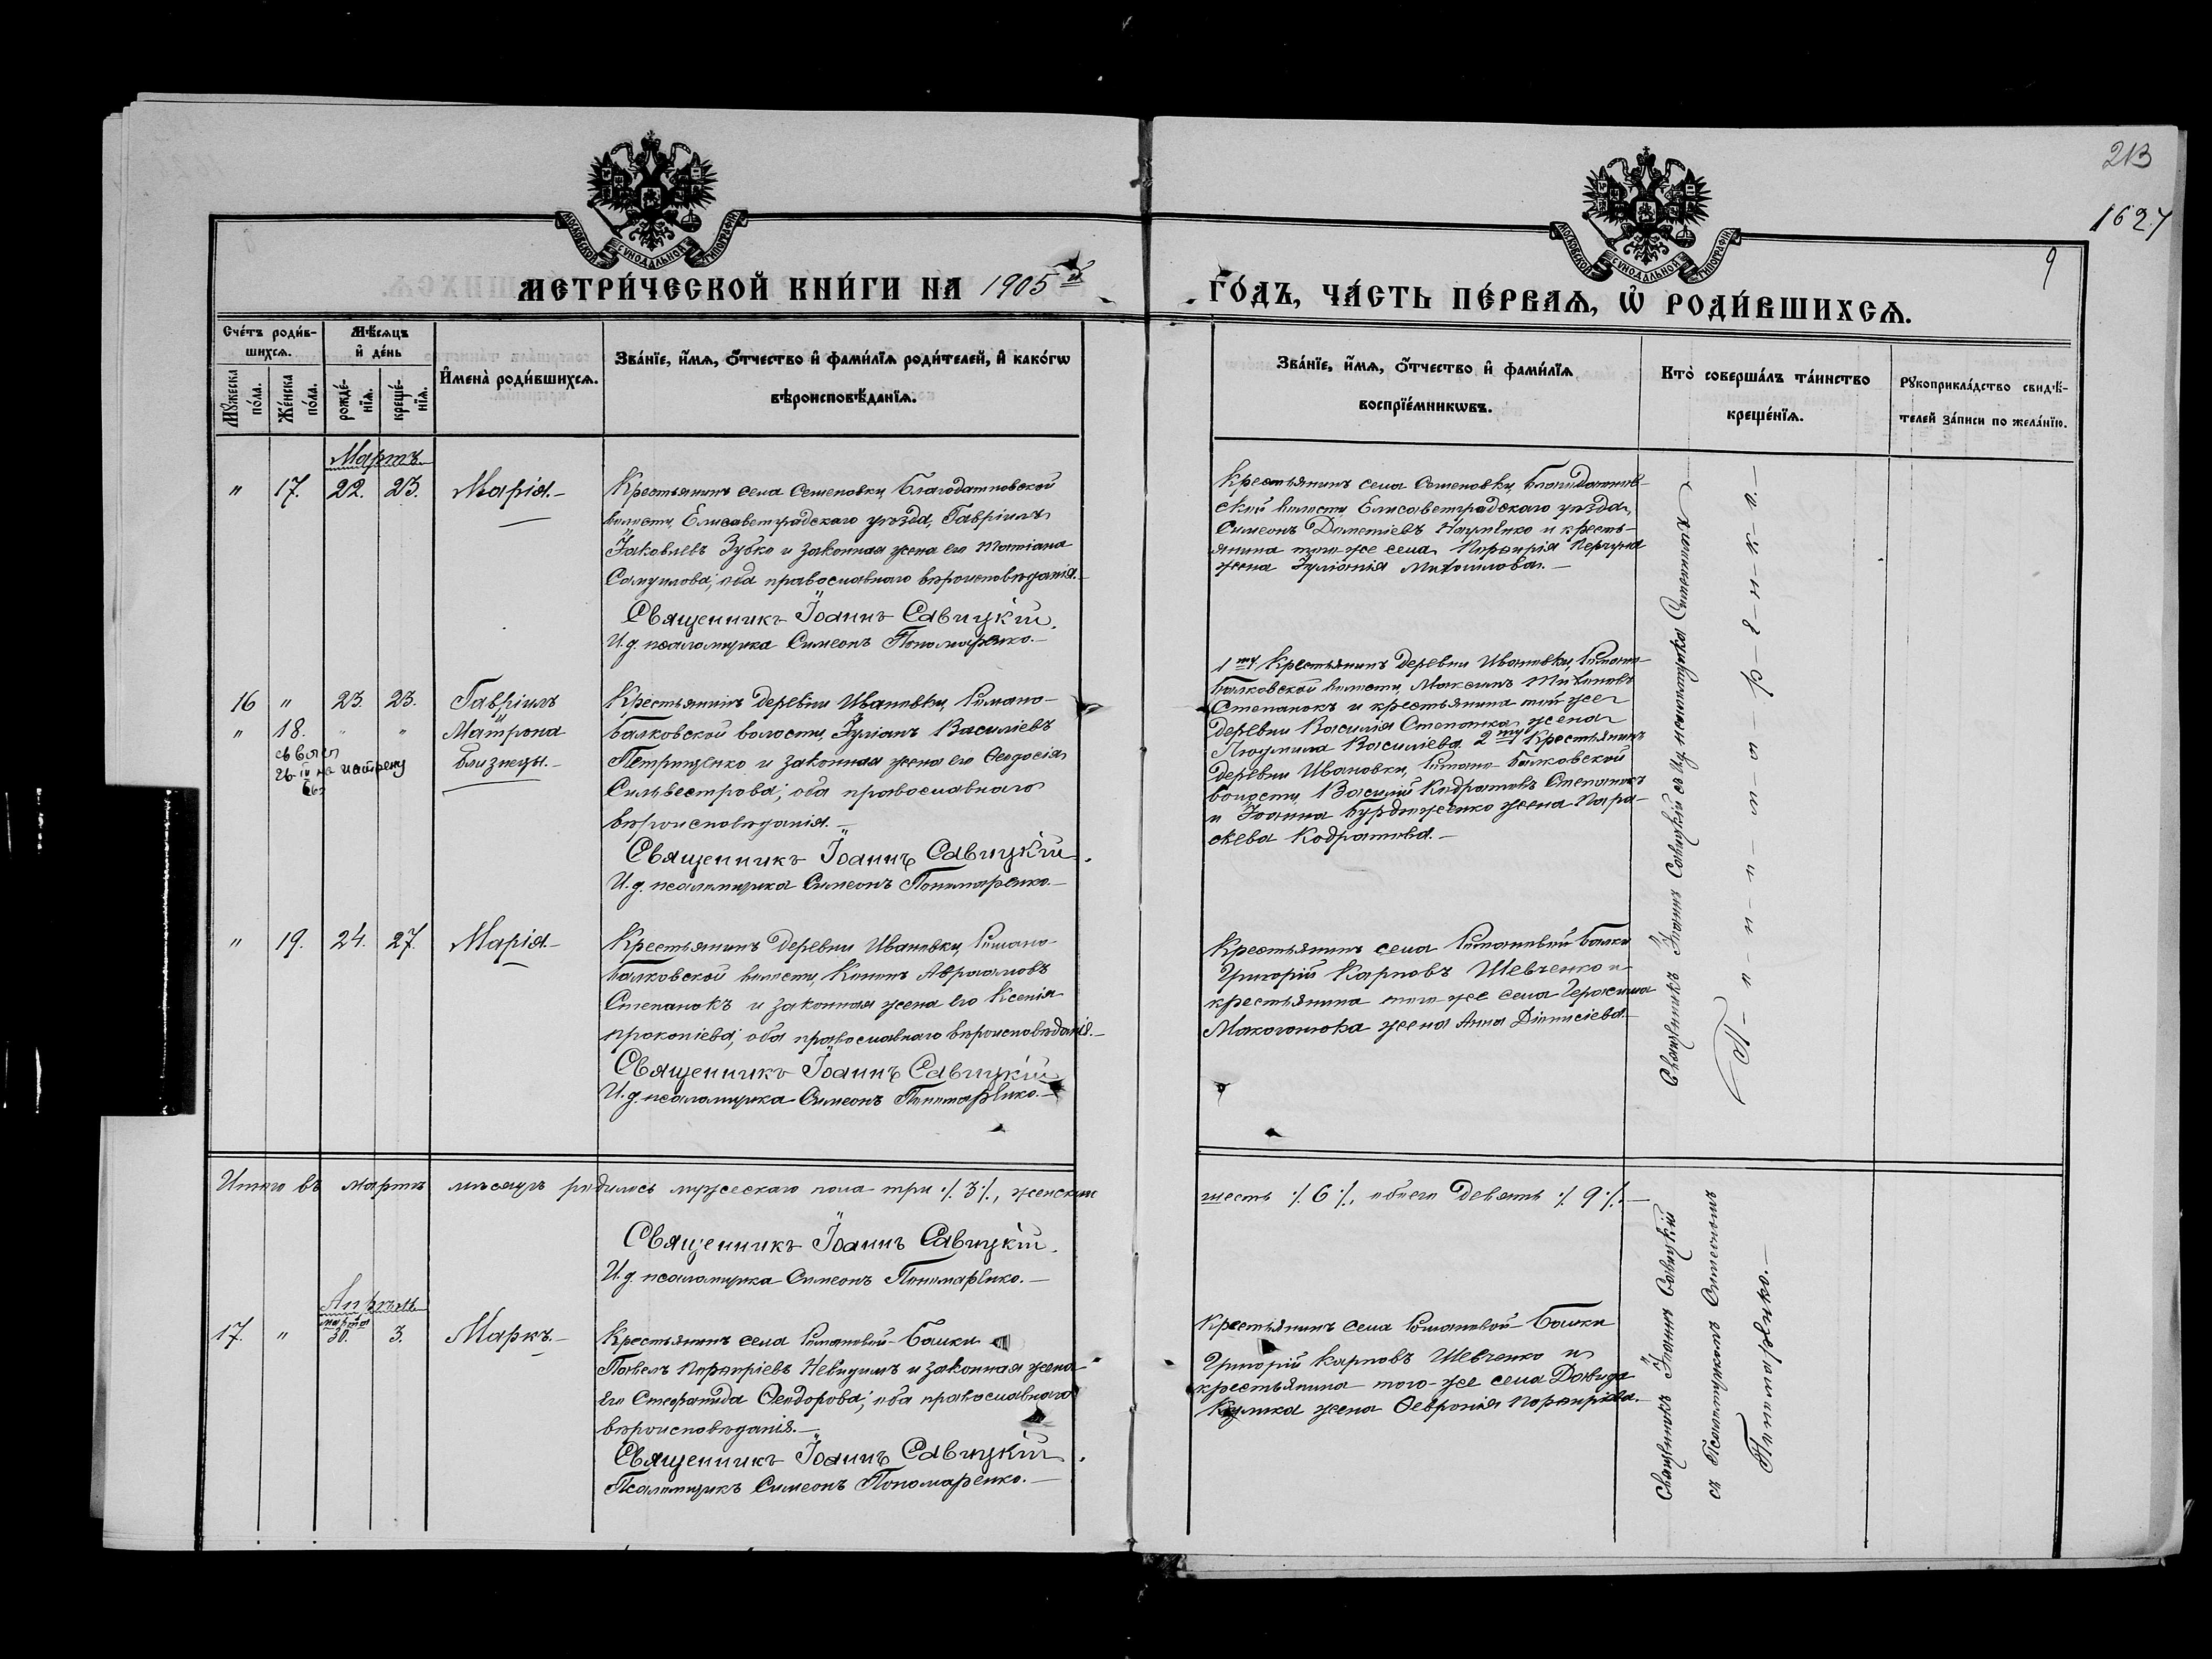 213
1627
9
МОСКОВСКОЙ СѴНОДАЛЬНОЙ ТИПОГРАФІИ
МОСКОВСКОЙ СѴНОДАЛЬНОЙ ТИПОГРАФІИ
МЕТРИ́ЧЕСКОЙ КНИ́ГИ НА 1905 й
ГО́ДЪ, ЧА́СТЬ ПЕ́РВАѦ, Ѡ҆ РОДИ́ВШИХСѦ.
Сче́тъ роди́в-
шихсѧ.
Мꙋжеска по́ла.
Же́нска по́ла.
Мѣ́сѧцъ
и҆ де́нь
рожде́-
нїѧ.
креще́-
нїѧ.
И҆мена̀ роди́вшихсѧ.
Зва́нїе, и҆́мѧ, ѻ҆́тчество и҆ фами́лїѧ роди́телей, и҆ како́гѡ
вѣроисповѣ́данїѧ.
Зва́нїе, и҆́мѧ, ѻ҆́тчество и҆ фами́лїѧ
воспрїе́мникѡвъ.
Кто̀ соверша́лъ та́инство
креще́нїѧ.
Рꙋкоприкла́дство свидѣ́-
телей за́писи по жела́нїю.
Мартъ
" 17. 22. 23. Марія.-
Крестьянинъ села Семеновки, Благодатновской
волости, Елисаветградскаго уѣзда, Гавріилъ
Іаковлевъ Зубко и законная жена его Татіана
Самуилова; оба православнаго вѣроисповѣданія.-
Священникъ Іоаннъ Савицкій.
И.д. псаломщика Симеонъ Пономаренко.-
Крестьянинъ села Семеновки, Благодатнов-
ской волости Елисаветградскаго уѣзда,
Симеонъ Науменко и кресть-
янина того-же села Порфирія
жена Іуліанія Михаилова.-
16 " 23. 23. Гавріилъ
" 18. " " Матрона
Близнецы.-
Крестьянинъ деревни Ивановки, Романо-
Балковской волости, Іуліанъ Василіевъ
Петриценко и законная жена его Ѳеодосія
Сильвестрова; оба православнаго
вѣроисповѣданія.-
Священникъ Іоаннъ Савицкій.
И.д. псаломщика Симеонъ Пономаренко.-
1му Крестьянинъ деревни Ивановки, Романо-
Балковской волости, Максимъ Тихоновъ
Степанокъ и крестьянина той-же
деревни Василія Степанка жена
Людмила Василіева. 2му Крестьянинъ
деревни Ивановки, Романо-Балковской
волости, Василій Кодратовъ Степанокъ
и Іоанна Бурдюженко жена Пара-
скева Кодратова.-
" 19. 24. 27. Марія.-
Крестьянинъ деревни Ивановки, Романо-
Балковской волости, Кононъ Авраамовъ
Степанокъ и законная жена его Ксенія
Прокопіева; оба православнаго вѣроисповѣданія.-
Священникъ Іоаннъ Савицкій
И.д. псаломщика Симеонъ Пономаренко.-
Крестьянинъ села Романовой Балки
Григорій Карповъ Шевченко и
крестьянина того-же села Герасима
Макогонюка жена Анна Діонисіева.-
Священникъ Іоаннъ Савицкій съ и.д. псаломщика Симеономъ
П-о-н-о-м-а-р-е-н-к-о.-
Итого въ мартѣ мѣсяцѣ родилось мужескаго пола три ./.3./., женскаго
шесть ./.6./., обоего девять ./.9./.-
Священникъ Іоаннъ Савицкій.
И.д. псаломщика Симеонъ Пономаренко.-
Апрѣль
марта
17. " 30. 3. Маркъ.-
Крестьянинъ села Романовой-Балки
Павелъ Порфиріевъ Невидимъ и законная жена
его Стефанида Ѳеодорова; оба православнаго
вѣроисповѣданія.-
Священникъ Іоаннъ Савицкій.
Псаломщикъ Симеонъ Пономаренко.-
Крестьянинъ села Романовой-Балки
Григорій Карповъ Шевченко и
крестьянина того-же села Давида
Кулика жена Ѳевронія Порфиріева.-
Священникъ Іоаннъ Савицкій
съ Псаломщикомъ Симеономъ
Пономаренко.-